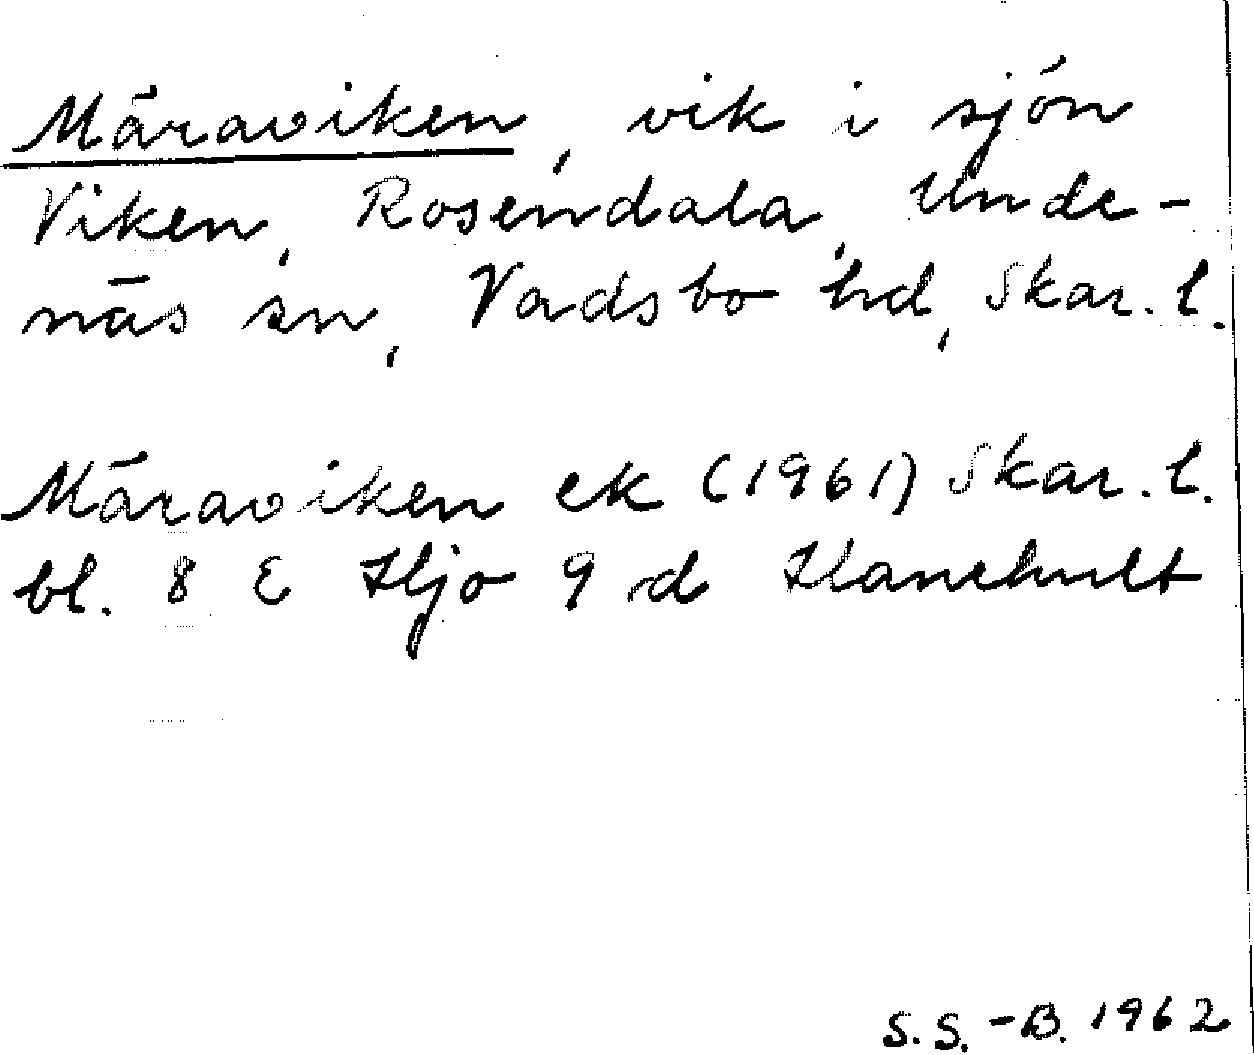 Märaviken, vik i sjön
Viken, Rosendala, Unde-
näs sn, Vadsbo hd, Skar. l.
Märaviken ek (1961) Skar. l.
bl. 8 E Hjo 9 d Hanehult
S. S. -B. 1962